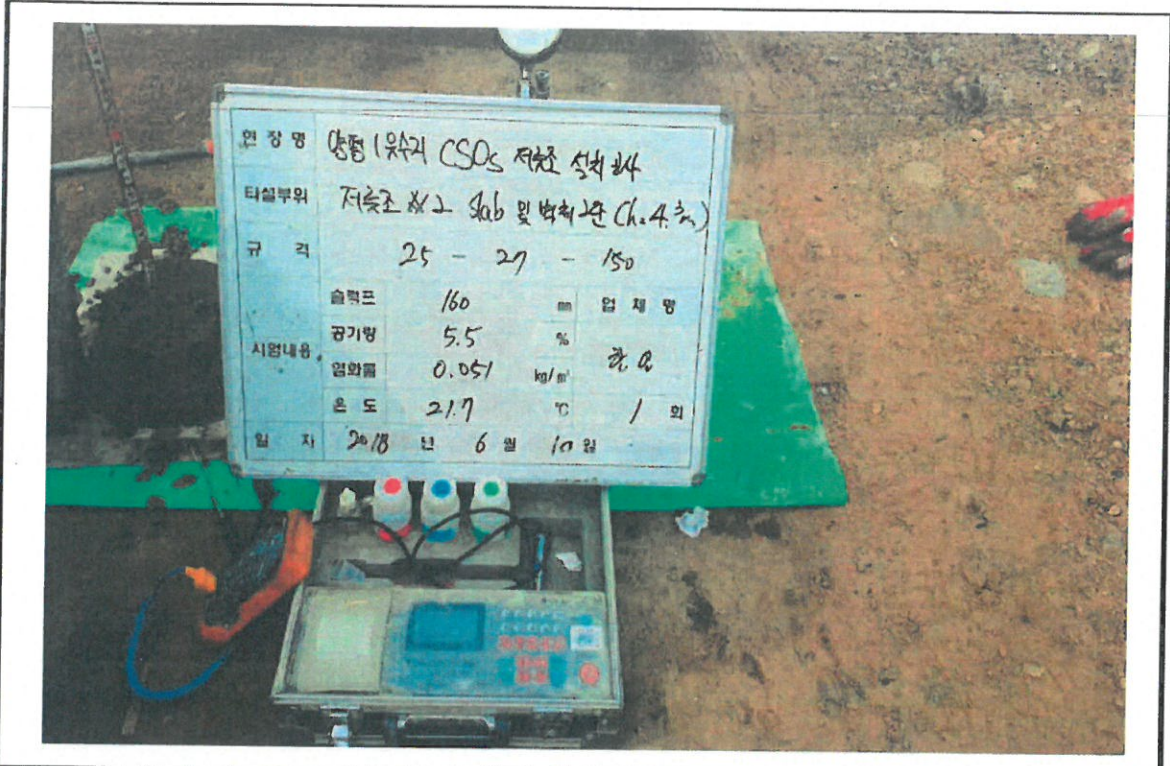 현장명 양평1유수지 CSOs 저류조 설치공사
타설부위 저류조 #2 Slab 및 벽체 2단 (h=4.3m)
규격 25 - 27 - 150
시험내용 슬럼프 160 mm 업체명
공기량 5.5 %
염화물 0.051 kg/m³
온도 21.7 ℃ 1 회
일자 2018 년 6 월 10 일